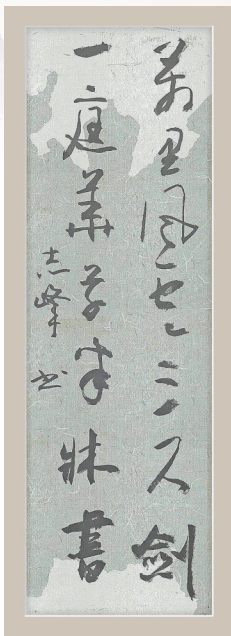 萬里風雲三尺劍
一庭華草半牀書
志峰书